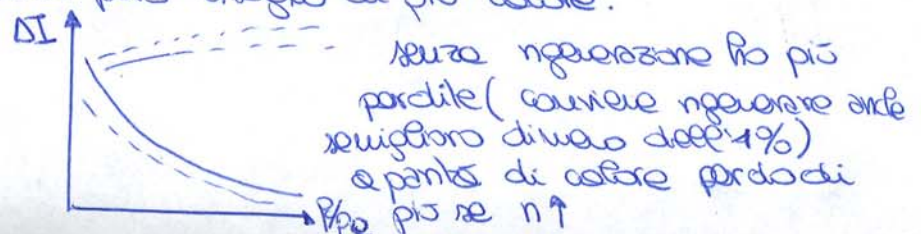 ΔI
senza rigenerazione ho più
perdite (conviene rigenerare anche
se miglioro di meno dell'1%)
a parità di calore perdo di
P/P₀ più se n↑